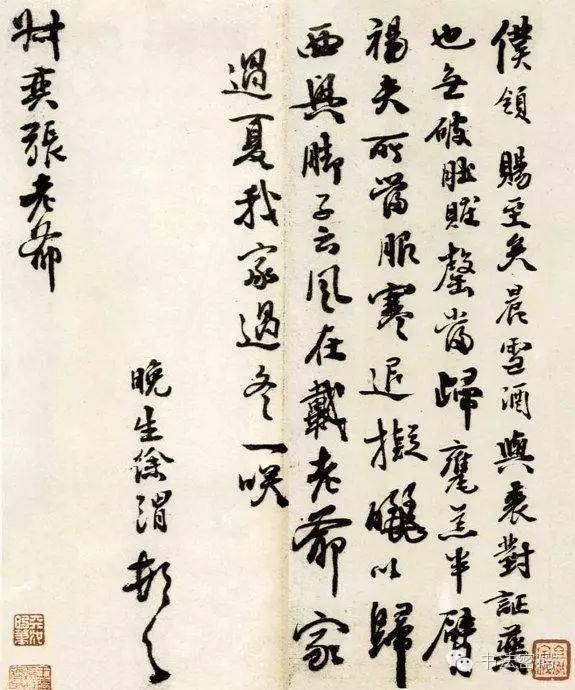 僕領賜至矣晨雪酒與裘對証藥
也無破肚賍罄當歸甕羔半臂
褐夫所當服寒退擬曬以歸
西興脚子云風在戴老爺家
過夏我家過冬一咲
晚生徐渭頓首
張老爺
书法密码